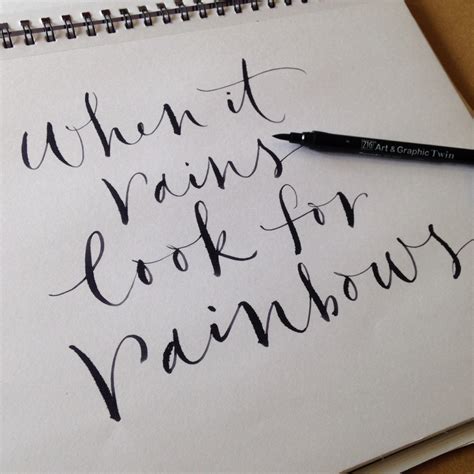 When it
rains
look for
rainbows
ZIG Art & Graphic Twin